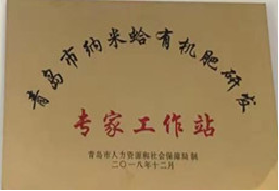 青岛市纳米蛤有机肥研发
专家工作站
青岛市人力资源和社会保障局 制
二〇一八年十二月